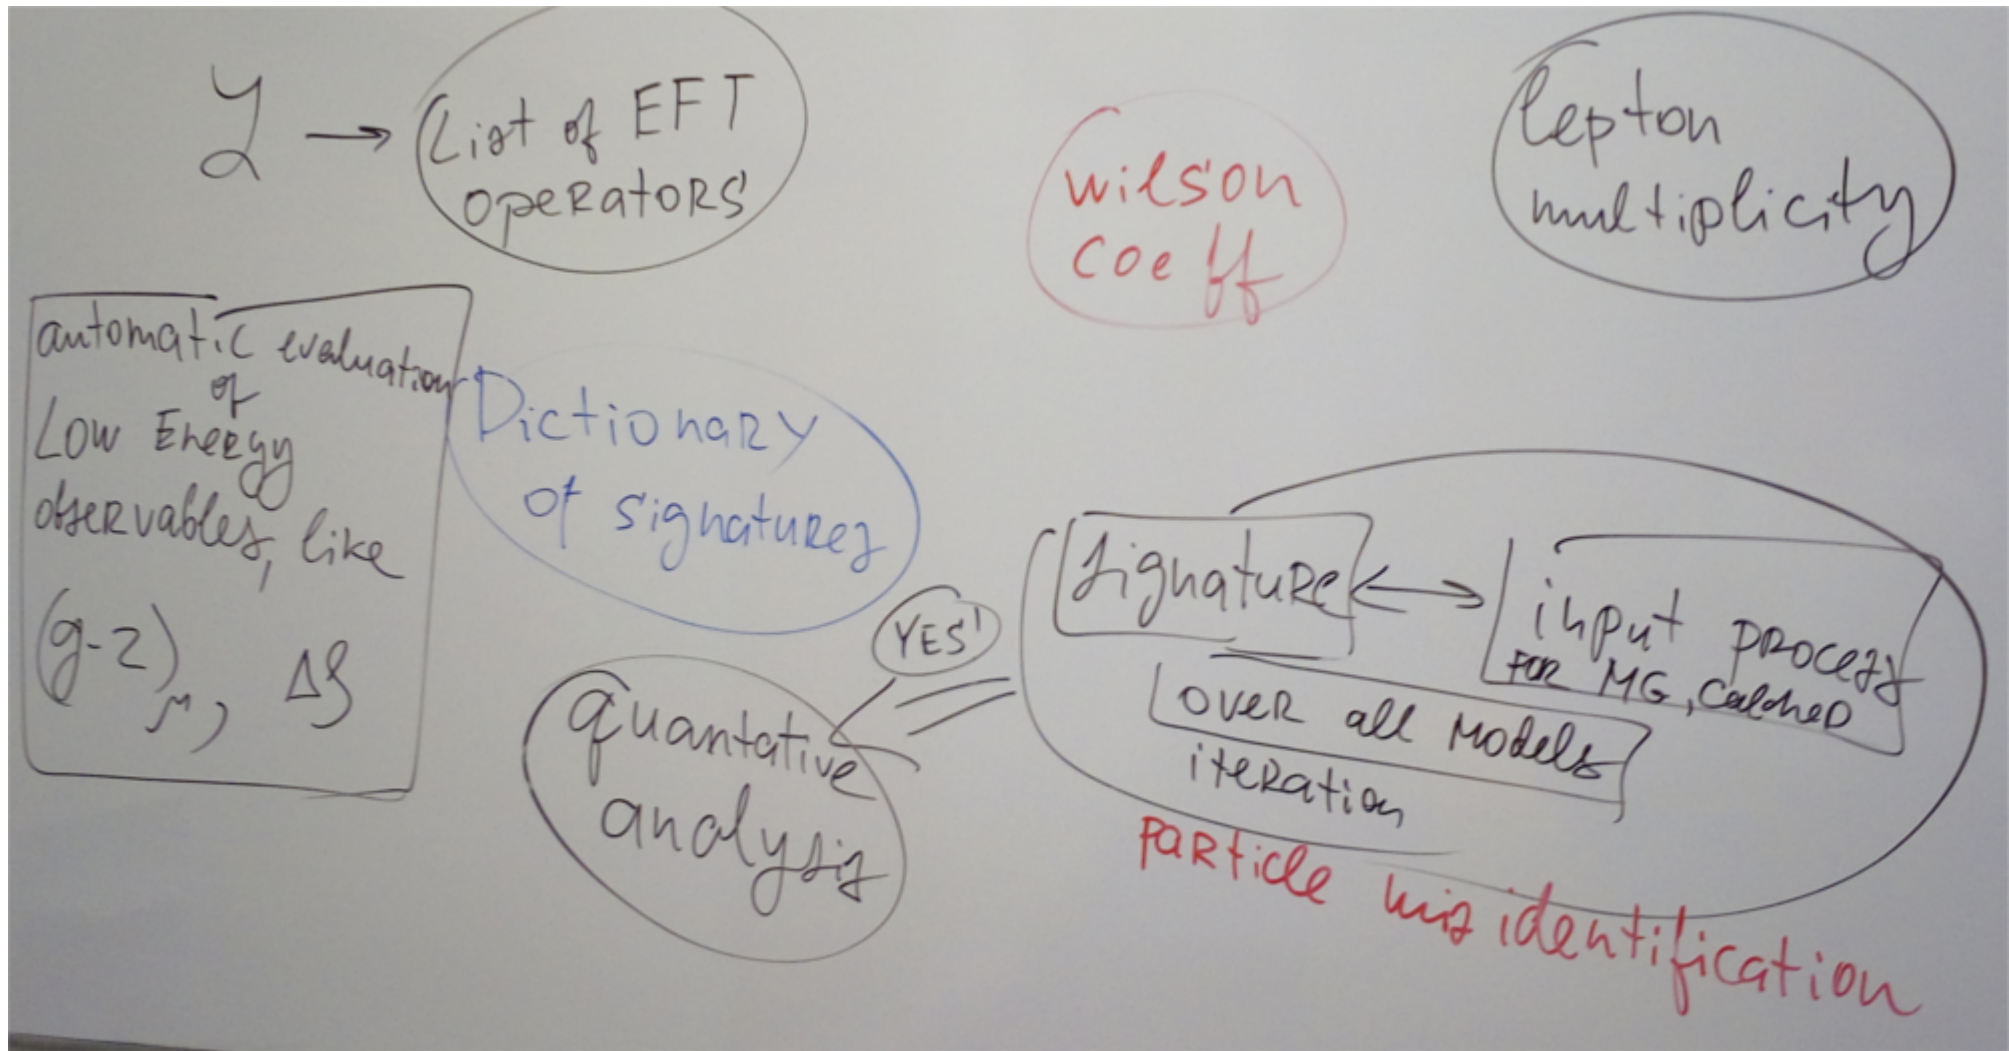 ℒ → List of EFT
operators
wilson
coeff
lepton
multiplicity
automatic evaluation
of
Low Energy
observables, like
(g-2)μ, Δρ
Dictionary
of signatures
YES!
quantative
analysis
signature ↔ input process
FOR MG, CalcHEP
over all models
iteration
particle misidentification